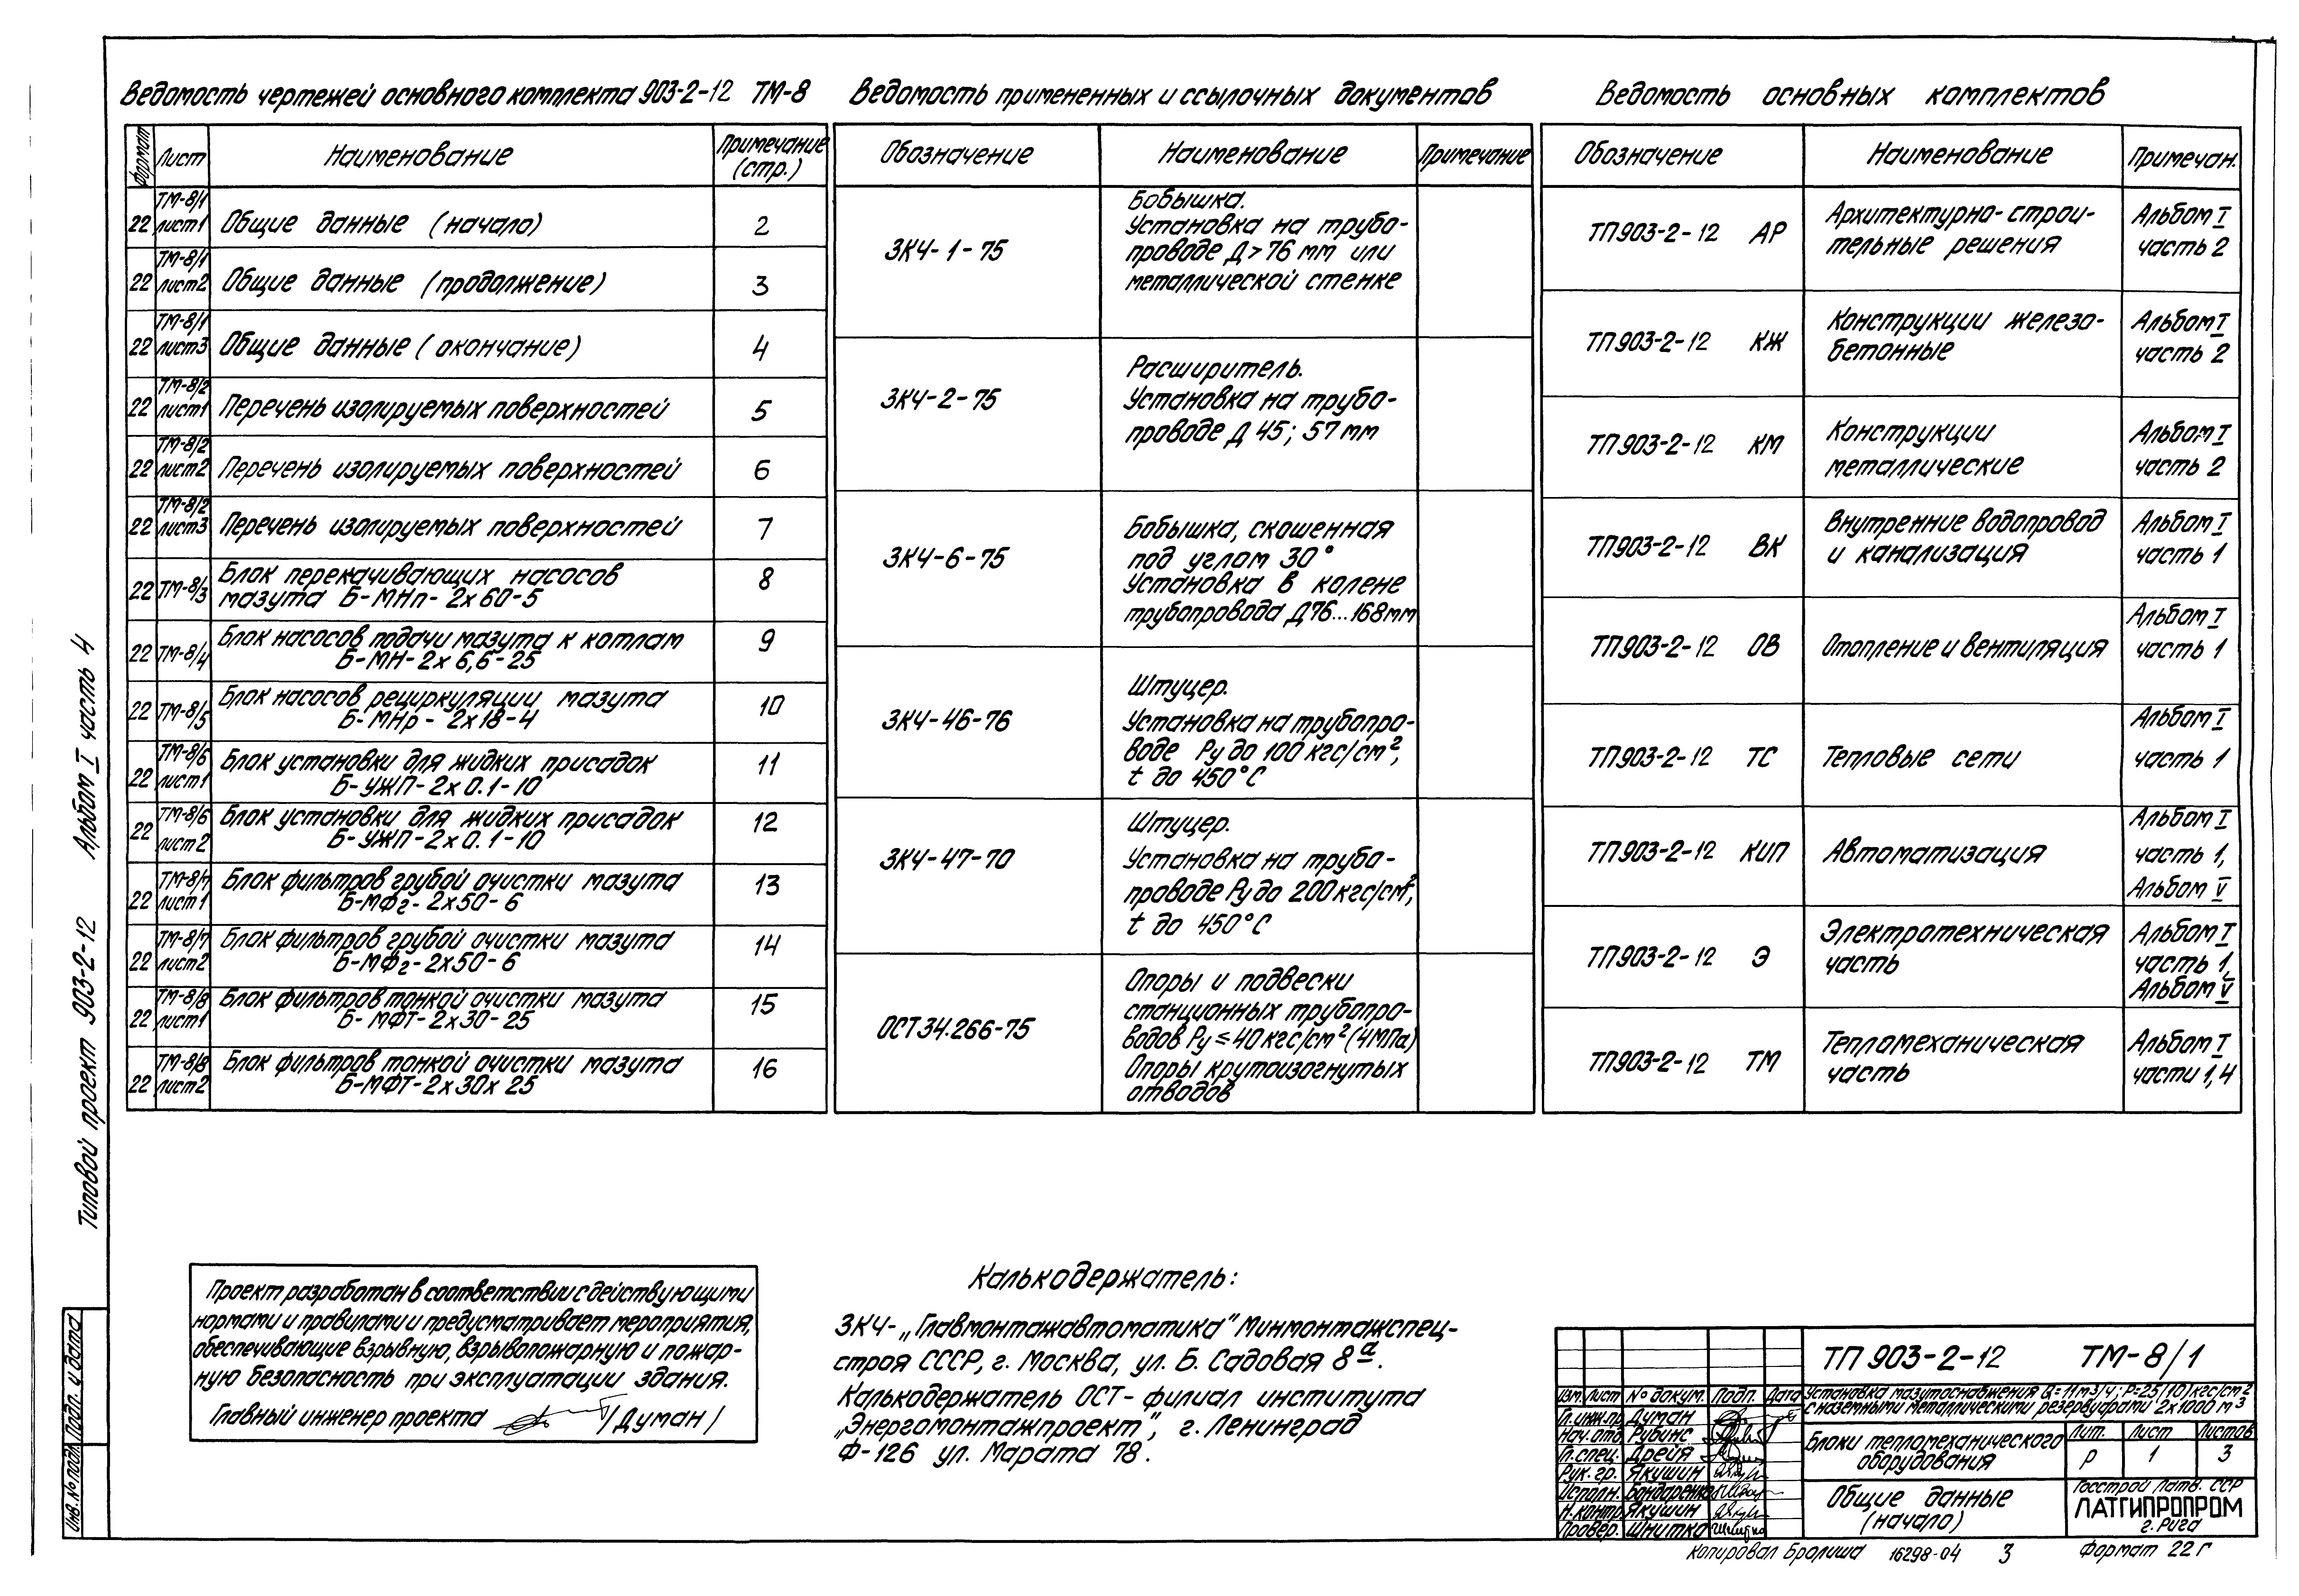 Ведомость чертежей основного комплекта 903-2-12 ТМ-8
Формат Лист Наименование Примечание (стр.)
22 ТМ-8/1 лист1 Общие данные (начало) 2
22 ТМ-8/1 лист2 Общие данные (продолжение) 3
22 ТМ-8/1 лист3 Общие данные (окончание) 4
22 ТМ-8/2 лист1 Перечень изолируемых поверхностей 5
22 ТМ-8/2 лист2 Перечень изолируемых поверхностей 6
22 ТМ-8/2 лист3 Перечень изолируемых поверхностей 7
22 ТМ-8/3 Блок перекачивающих насосов 8
мазута Б-МНп-2х60-5
22 ТМ-8/4 Блок насосов подачи мазута к котлам 9
Б-МН-2х6,6-25
22 ТМ-8/5 Блок насосов рециркуляции мазута 10
Б-МНр-2х18-4
22 ТМ-8/6 лист1 Блок установки для жидких присадок 11
Б-УЖП-2х0.1-10
22 ТМ-8/6 лист2 Блок установки для жидких присадок 12
Б-УЖП-2х0.1-10
22 ТМ-8/7 лист1 Блок фильтров грубой очистки мазута 13
Б-МФг-2х50-6
22 ТМ-8/7 лист2 Блок фильтров грубой очистки мазута 14
Б-МФг-2х50-6
22 ТМ-8/8 лист1 Блок фильтров тонкой очистки мазута 15
Б-МФТ-2х30-25
22 ТМ-8/8 лист2 Блок фильтров тонкой очистки мазута 16
Б-МФТ-2х30х25
Ведомость примененных и ссылочных документов
Обозначение Наименование Примечание
ЗКЧ-1-75
Бобышка.
Установка на трубо-
проводе Д>76 мм или
металлической стенке
ЗКЧ-2-75
Расширитель.
Установка на трубо-
проводе Д 45; 57 мм
ЗКЧ-6-75
Бобышка, скошенная
под углом 30°
Установка в колене
трубопровода Д76...168мм
ЗКЧ-46-76
Штуцер.
Установка на трубопро-
воде Ру до 100 кгс/см²,
t до 450°С
ЗКЧ-47-70
Штуцер.
Установка на трубо-
проводе Ру до 200 кгс/см²,
t до 450°С
ОСТ34.266-75
Опоры и подвески
станционных трубопро-
водов Ру ≤ 40 кгс/см² (4МПа)
Опоры крутоизогнутых
отводов
Ведомость основных комплектов
Обозначение Наименование Примечан.
ТП903-2-12 АР
Архитектурно-строи-
тельные решения
Альбом I
часть 2
ТП903-2-12 КЖ
Конструкции железо-
бетонные
Альбом I
часть 2
ТП903-2-12 КМ
Конструкции
металлические
Альбом I
часть 2
ТП903-2-12 ВК
Внутренние водопровод
и канализация
Альбом I
часть 1
ТП903-2-12 ОВ
Отопление и вентиляция
Альбом I
часть 1
ТП903-2-12 ТС
Тепловые сети
Альбом I
часть 1
ТП903-2-12 КИП
Автоматизация
Альбом I
часть 1,
Альбом V
ТП903-2-12 Э
Электротехническая
часть
Альбом I
часть 1,
Альбом V
ТП903-2-12 ТМ
Тепломеханическая
часть
Альбом I
части 1,4
Типовой проект 903-2-12 Альбом I часть 4
Инв.№подл. Подп. и дата
Проект разработан в соответствии с действующими
нормами и правилами и предусматривает мероприятия,
обеспечивающие взрывную, взрывопожарную и пожар-
ную безопасность при эксплуатации здания.
Главный инженер проекта /Думан/
Калькодержатель:
ЗКЧ-„Главмонтажавтоматика" Минмонтажспец-
строя СССР, г. Москва, ул. Б. Садовая 8а.
Калькодержатель ОСТ- филиал института
„Энергомонтажпроект", г. Ленинград
Ф-126 ул. Марата 78.
ТП 903-2-12 ТМ-8/1
Изм. Лист № докум. Подп. Дата
Установка мазутоснабжения Q=11м3/ч; Р=25(10)кгс/см2
с наземными металлическими резервуарами 2х1000 м3
Гл.инж.пр. Думан
Нач.отд. Рубинс
Гл.спец. Дрейя
Рук.гр. Якушин
Исполн. Бондаренко
Н.контр. Якушин
Провер. Шнитко
Блоки тепломеханического
оборудования
Лит. Лист Листов
Р 1 3
Общие данные
(начало)
Госстрой Латв. ССР
ЛАТГИПРОПРОМ
г. Рига
Копировал Бролиша 16298-04 3 Формат 22Г